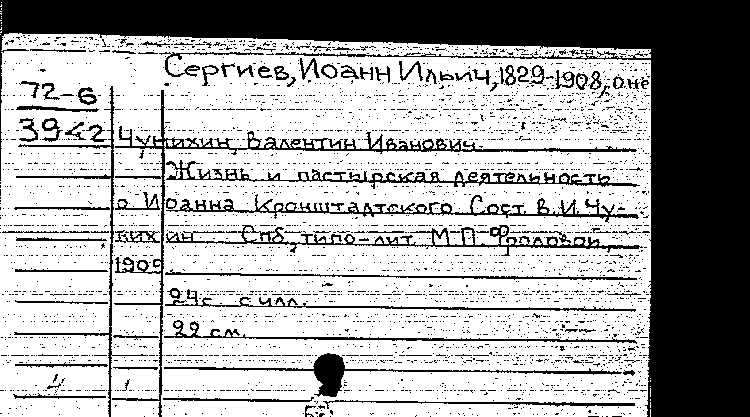 Сергиев, Иоанн Ильич, 1829-1908, о не
72-6
3942
Чумихин, Валентин Иванович.
Жизнь и пастырская деятельность
о Иоанна Кронштадтского. Сост. В.И. Чу-
михин Спб, типо-лит. М.П. Фроловой,
1909
24 с. с илл.
22 см.